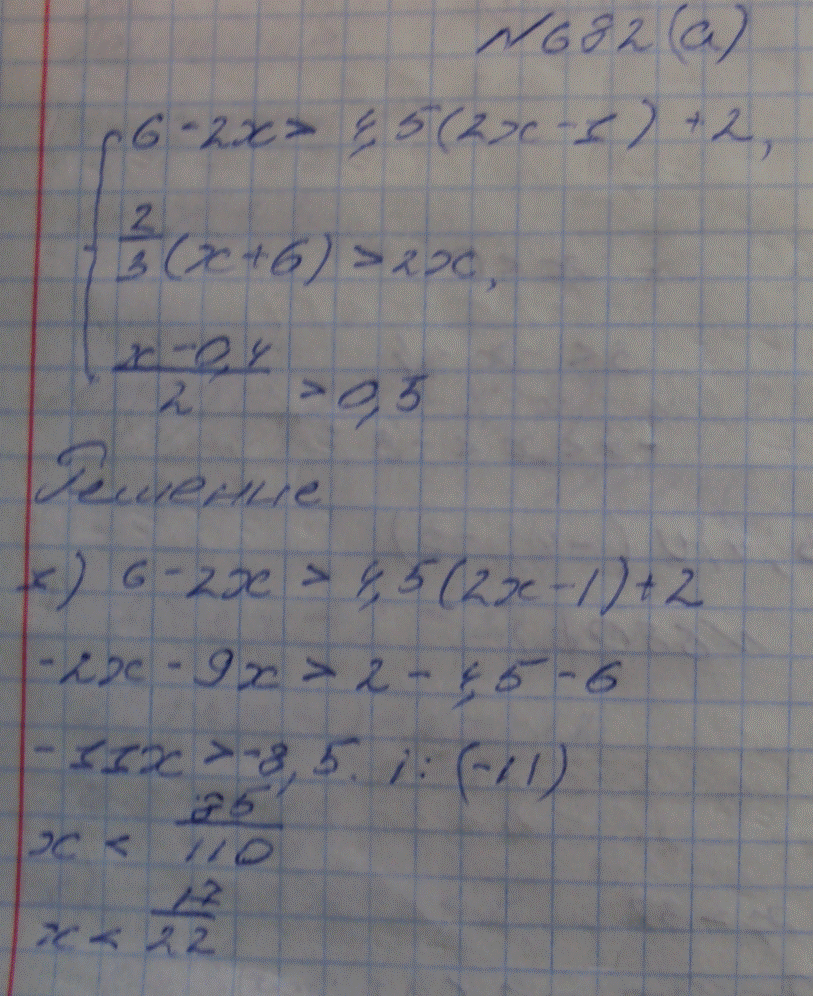 №682(а)
6-2x > 4,5(2x-1)+2,
2/3(x+6) > 2x,
x-0,4/2 > 0,5
Решение
1) 6-2x > 4,5(2x-1)+2
-2x-9x > 2-4,5-6
-11x > -8,5. |: (-11)
x < 85/110
x < 17/22